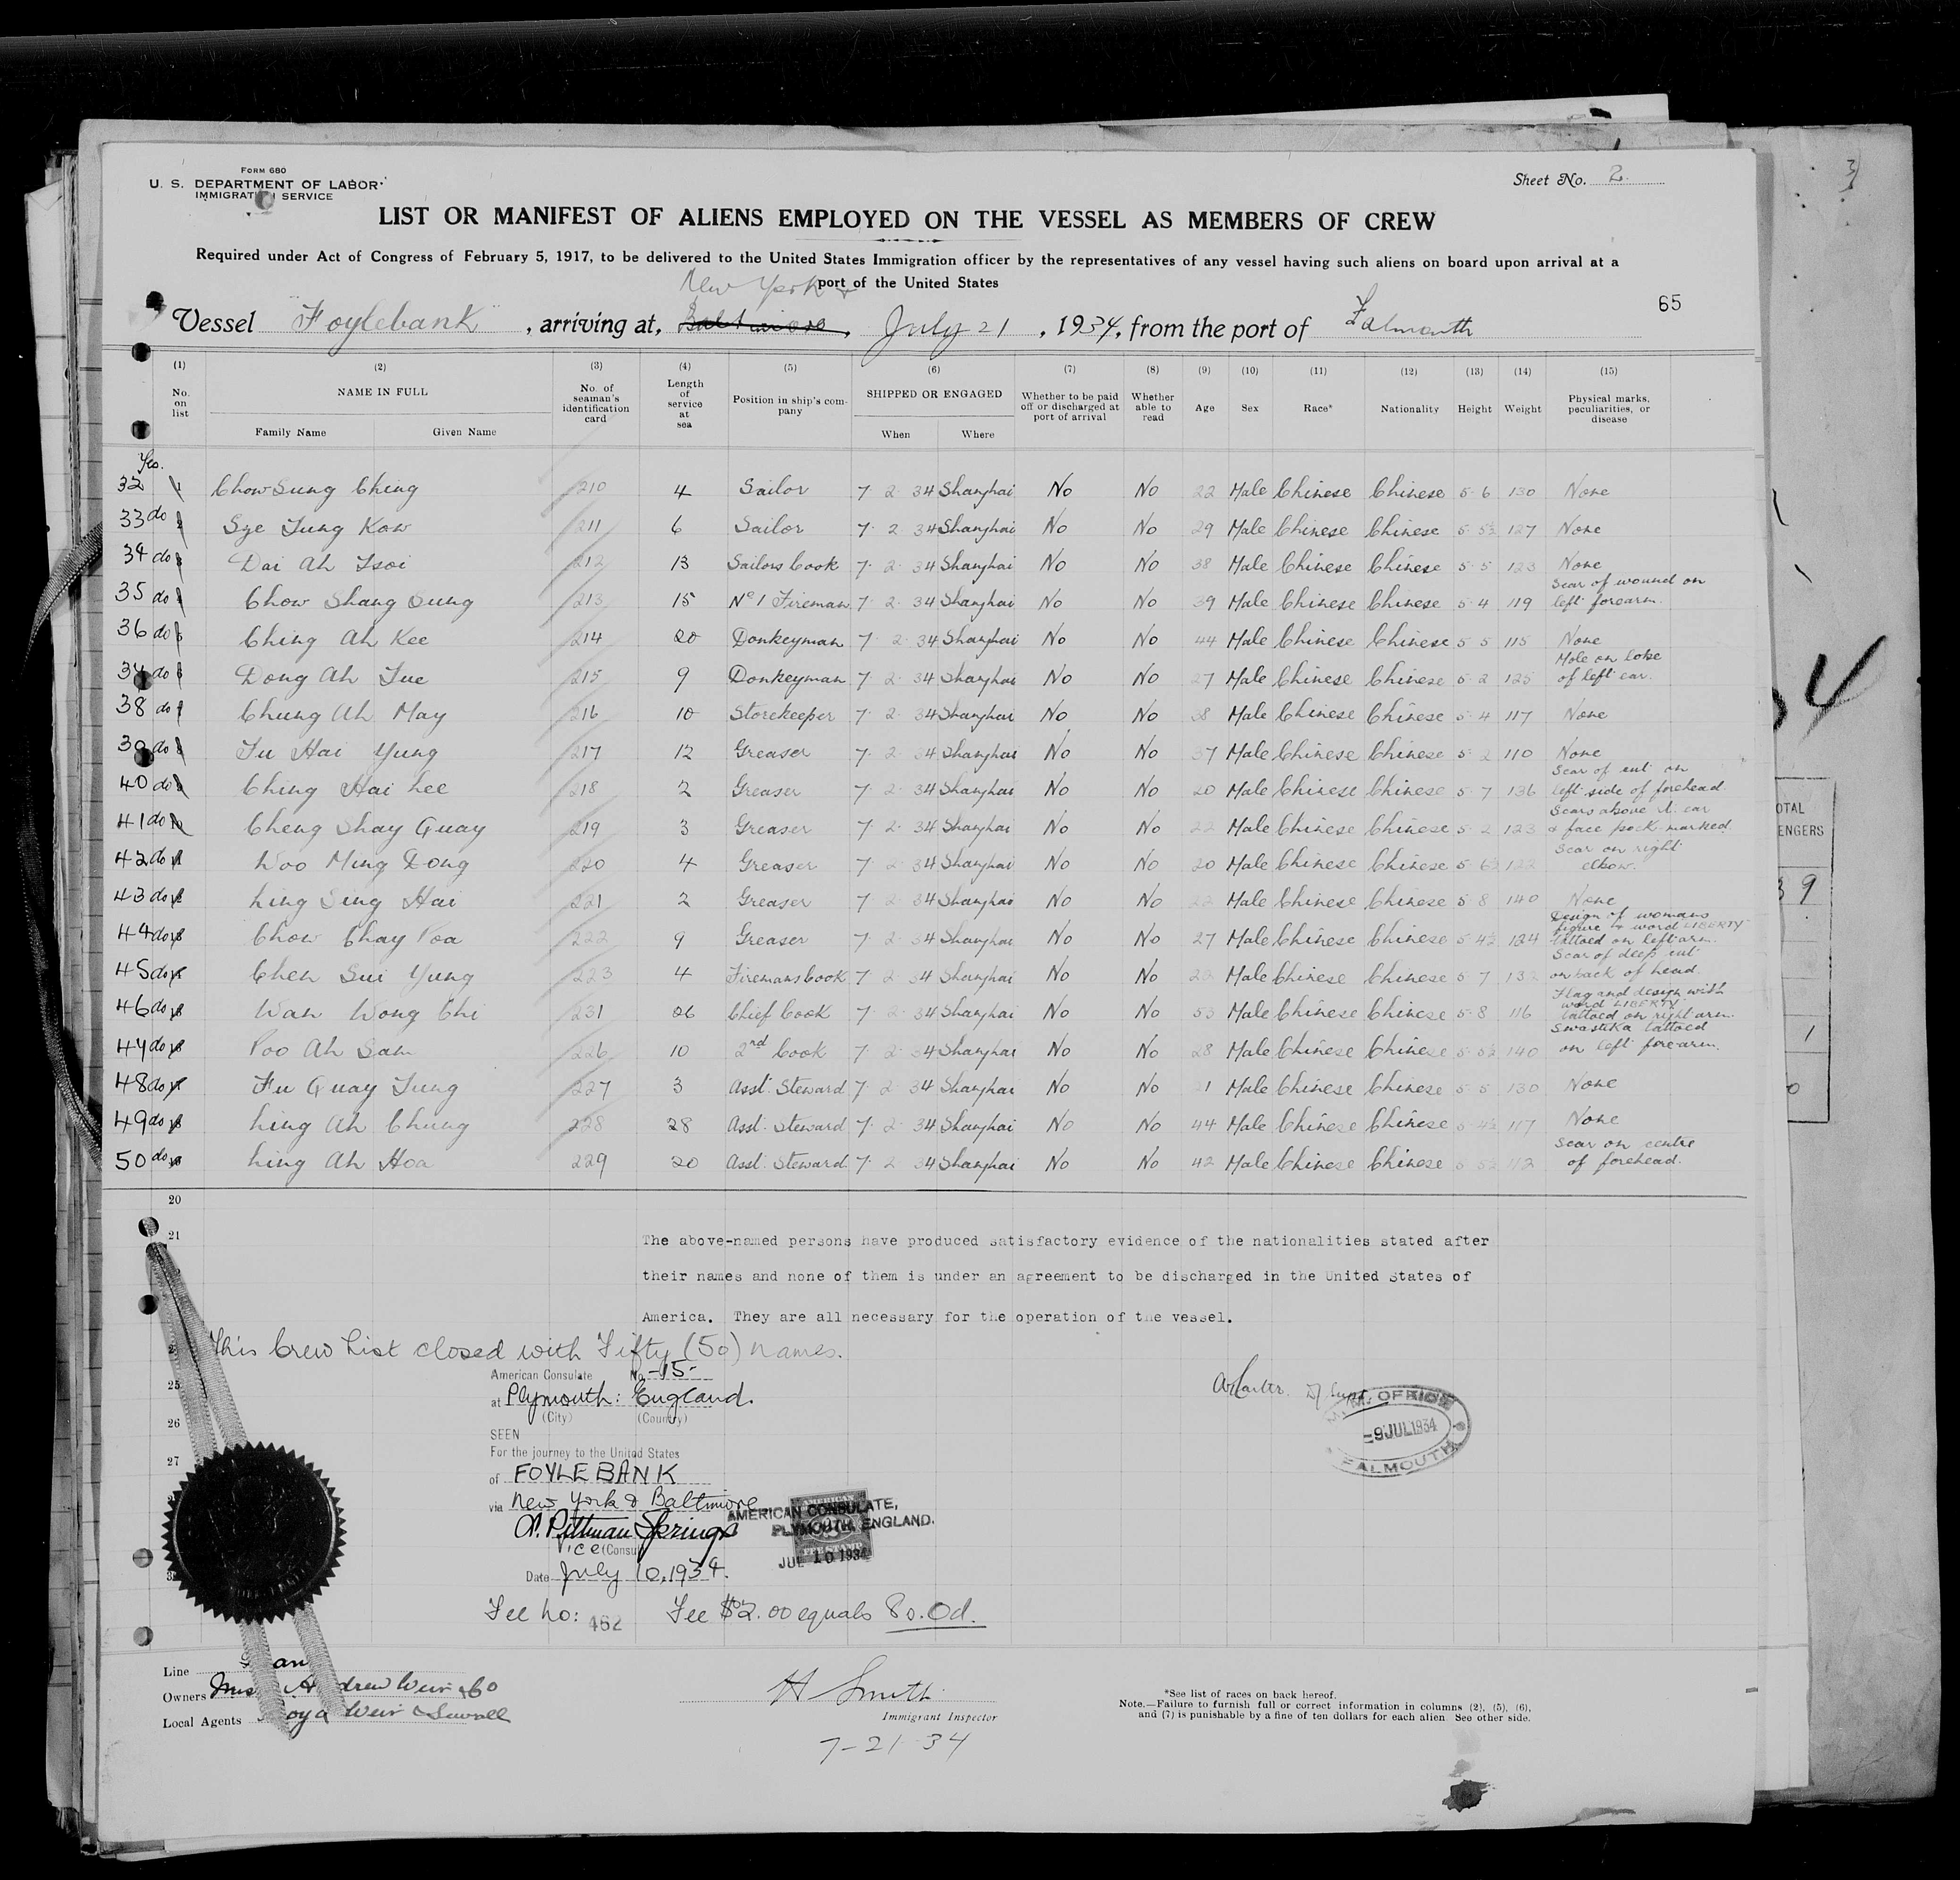 FORM 680
U. S. DEPARTMENT OF LABOR
IMMIGRATION SERVICE
Sheet No. 2
LIST OR MANIFEST OF ALIENS EMPLOYED ON THE VESSEL AS MEMBERS OF CREW
Required under Act of Congress of February 5, 1917, to be delivered to the United States Immigration officer by the representatives of any vessel having such aliens on board upon arrival at a
port of the United States
New York
65
Vessel "Foylebank", arriving at, Baltimore, July 21, 1934, from the port of Falmouth
(1) (2) (3) (4) (5) (6) (7) (8) (9) (10) (11) (12) (13) (14) (15)
No. on list NAME IN FULL Family Name Given Name No. of seaman's identification card Length of service at sea Position in ship's company SHIPPED OR ENGAGED When Where Whether to be paid off or discharged at port of arrival Whether able to read Age Sex Race* Nationality Height Weight Physical marks, peculiarities, or disease
Yes.
32 1 Chow Sung Ching 210 4 Sailor 7 2 34 Shanghai No No 22 Male Chinese Chinese 5 6 130 None
33 do Sze Tung Kow 211 6 Sailor 7 2 34 Shanghai No No 29 Male Chinese Chinese 5 5½ 127 None
34 do Dai Ah Tsoi 212 13 Sailors Cook 7 2 34 Shanghai No No 38 Male Chinese Chinese 5 5 123 None
35 do Chow Shang Sung 213 15 No 1 Fireman 7 2 34 Shanghai No No 39 Male Chinese Chinese 5 4 119 Scar of wound on left forearm.
36 do Ching Ah Kee 214 20 Donkeyman 7 2 34 Shanghai No No 44 Male Chinese Chinese 5 5 115 None
37 do Dong Ah Tue 215 9 Donkeyman 7 2 34 Shanghai No No 27 Male Chinese Chinese 5 2 125 Mole on lobe of left ear.
38 do Chung Ah May 216 10 Storekeeper 7 2 34 Shanghai No No 38 Male Chinese Chinese 5 4 117 None
39 do Fu Hai Yung 217 12 Greaser 7 2 34 Shanghai No No 37 Male Chinese Chinese 5 2 110 None
40 do Ching Hai Lee 218 2 Greaser 7 2 34 Shanghai No No 20 Male Chinese Chinese 5 7 136 Scar of cut on left side of forehead
41 do Cheng Shay Quay 219 3 Greaser 7 2 34 Shanghai No No 22 Male Chinese Chinese 5 2 123 Scars above ear & face pock-marked.
42 do Woo Ming Dong 220 4 Greaser 7 2 34 Shanghai No No 20 Male Chinese Chinese 5 6½ 122 Scar on right elbow.
43 do Ling Sing Hai 221 2 Greaser 7 2 34 Shanghai No No 22 Male Chinese Chinese 5 8 140 None
44 do Chow Chay Poa 222 9 Greaser 7 2 34 Shanghai No No 27 Male Chinese Chinese 5 4½ 124 Design of womans figure & word LIBERTY tattoed on left arm.
45 do Chen Sui Yung 223 4 Firemans Cook 7 2 34 Shanghai No No Male Chinese Chinese 5 7 132 Scar of deep cut on back of head.
46 do Wan Wong Chi 231 26 Chief Cook 7 2 34 Shanghai No No 53 Male Chinese Chinese 5 8 116 Flag and design with word LIBERTY tattoed on right arm.
47 do Poo Ah Sam 226 10 2nd Cook 7 2 34 Shanghai No No 28 Male Chinese Chinese 5 5½ 140 Swastika tattoed on left forearm.
48 do Fu Quay Tung 227 3 Asst. Steward 7 2 34 Shanghai No No 21 Male Chinese Chinese 5 5 130 None
49 do Ling Ah Chung 228 28 Asst. Steward 7 2 34 Shanghai No No 44 Male Chinese Chinese 5 4½ 117 None
50 do Ling Ah Hoa 229 20 Asst. Steward 7 2 34 Shanghai No No 42 Male Chinese Chinese 5 5½ 112 Scar on centre of forehead.
20
21
The above-named persons have produced satisfactory evidence of the nationalities stated after
their names and none of them is under an agreement to be discharged in the United States of
America. They are all necessary for the operation of the vessel.
This Crew List closed with Fifty (50) names.
American Consulate No. -15-
25
at Plymouth: England.
(City) (Country)
26
SEEN
For the journey to the United States
27
of FOYLEBANK
via New York & Baltimore
Pittman Springs
Vice (Consul)
Date July 10, 1934.
Fee No: 462 Fee $2.00 equals 8s. 0d.
AMERICAN CONSULATE,
PLYMOUTH, ENGLAND.
JUL 10 1934
FEE STAMP
OFFICE
-9 JUL 1934
FALMOUTH
Line
Owners Andrew Weir & Co
Local Agents Weir &
H Smith
Immigrant Inspector
7-21-34
*See list of races on back hereof.
Note.—Failure to furnish full or correct information in columns (2), (5), (6),
and (7) is punishable by a fine of ten dollars for each alien. See other side.
4
OTAL
ENGERS
9
1
0